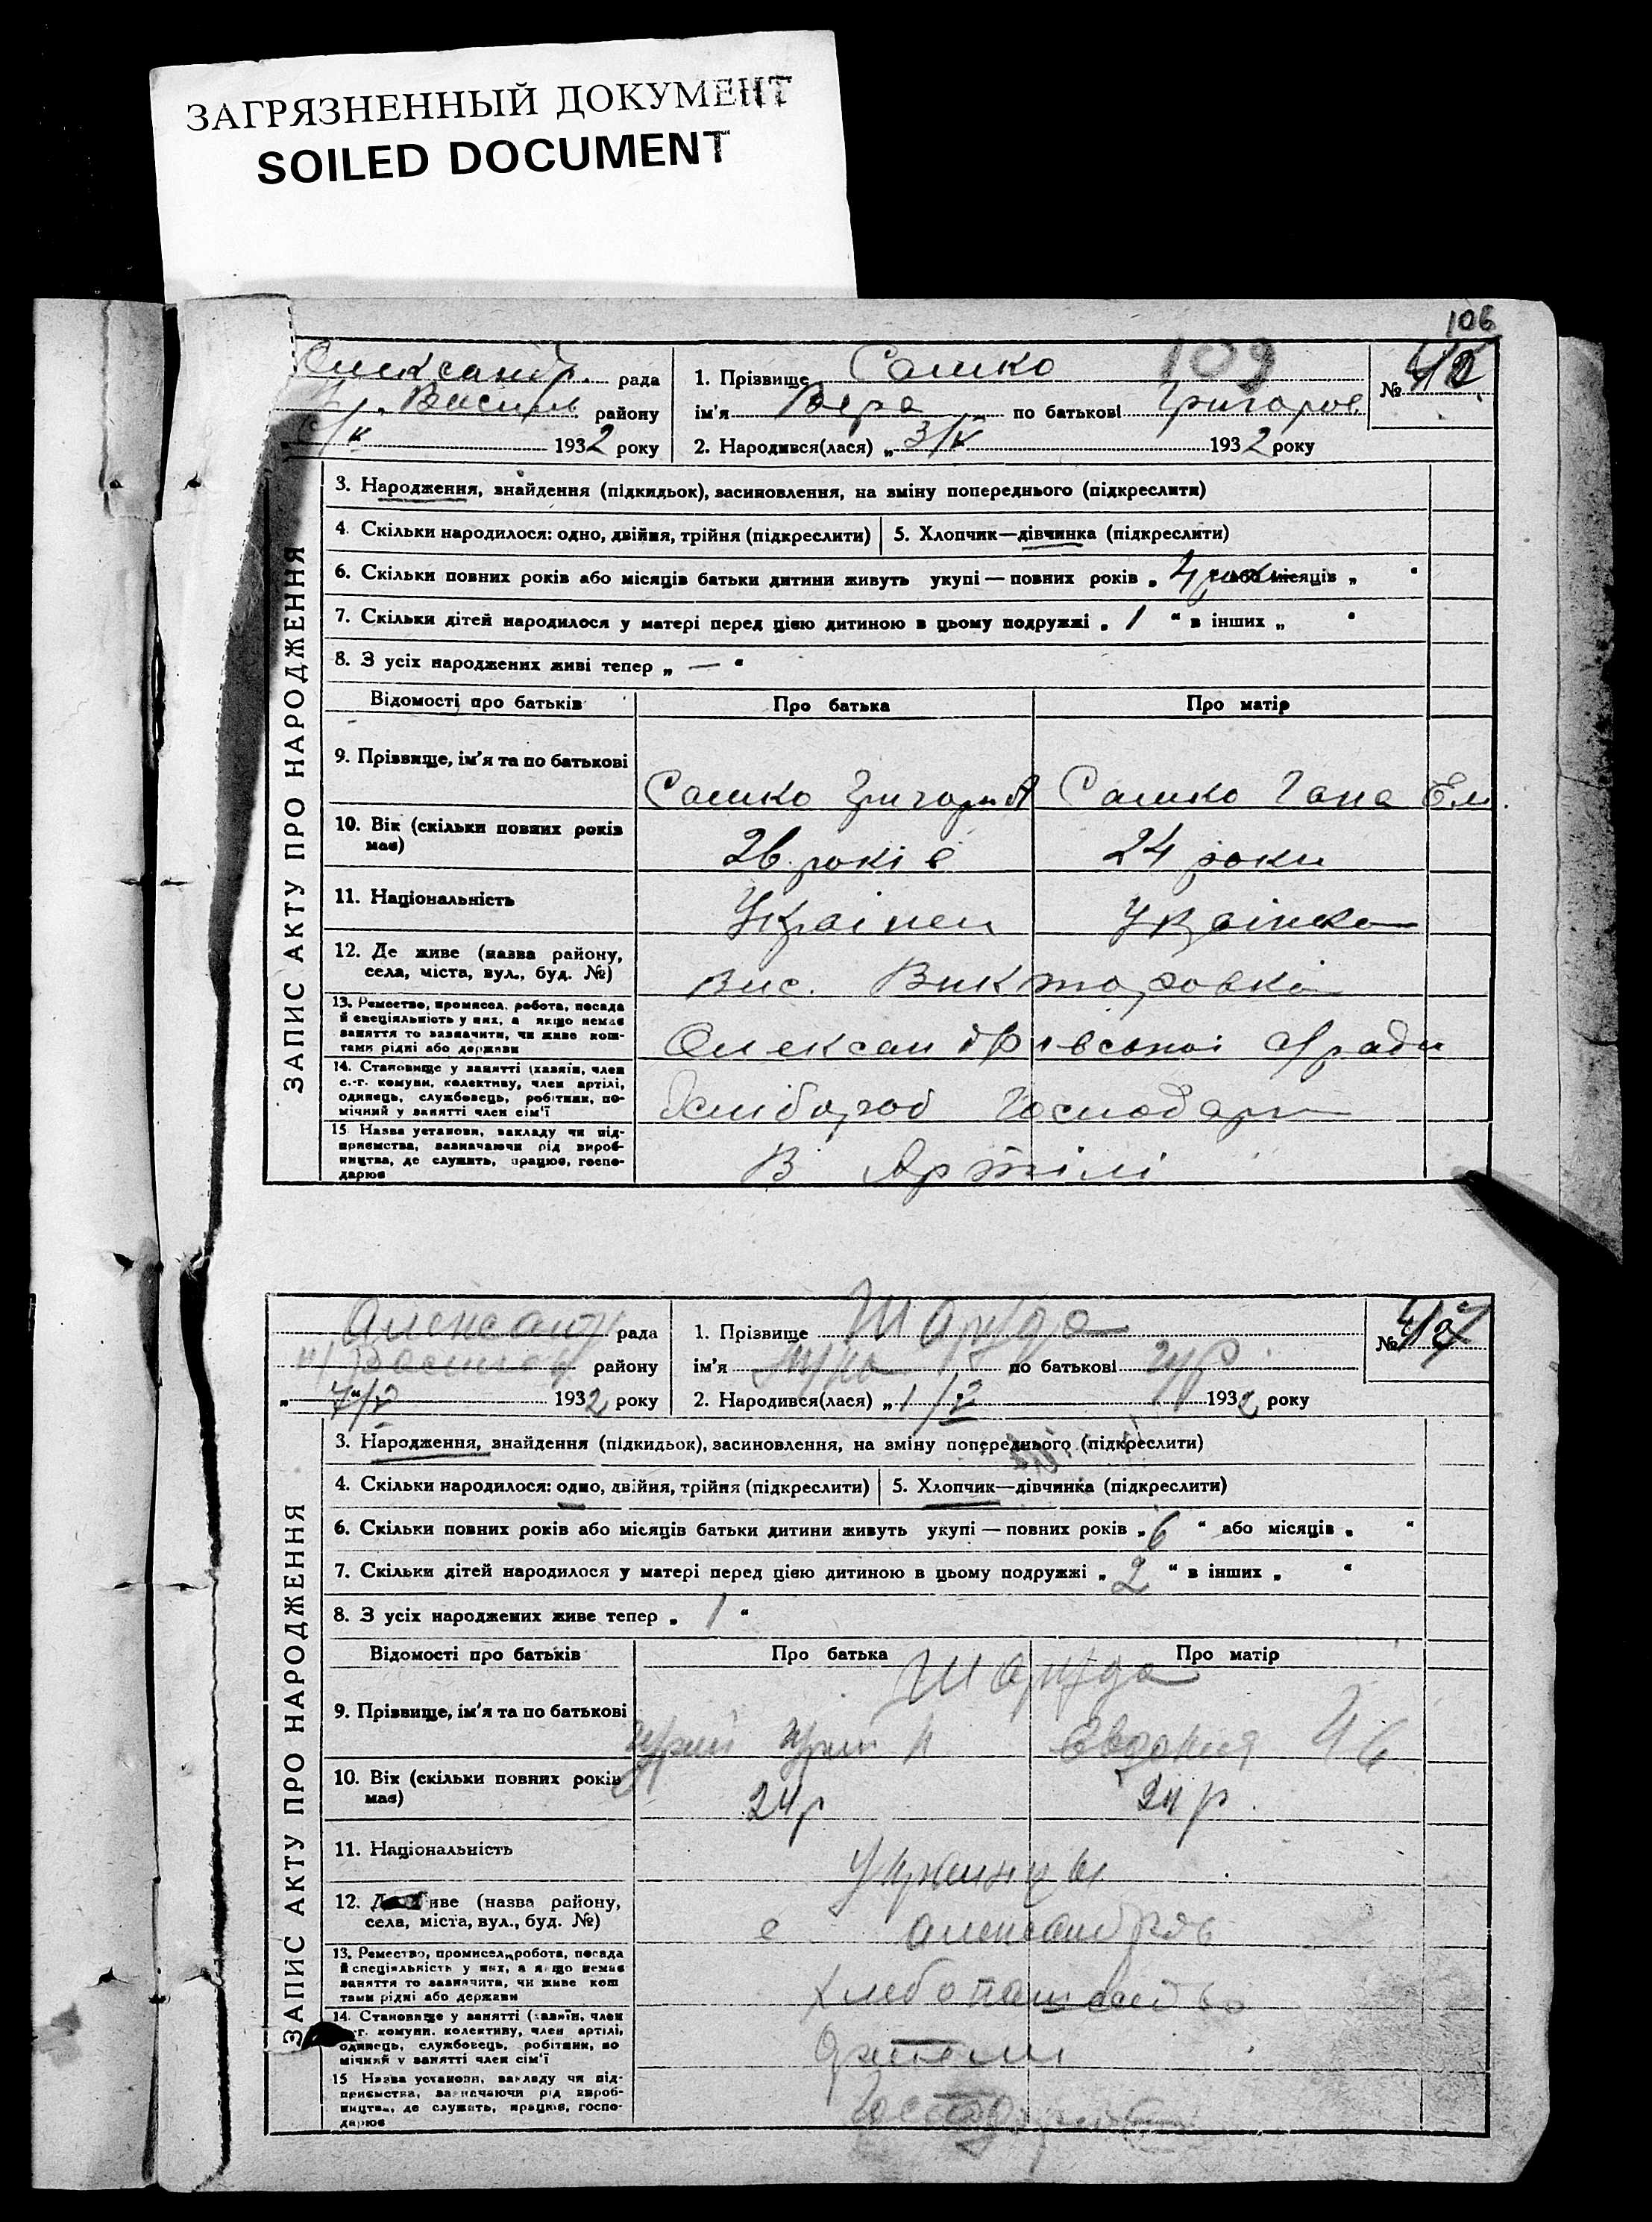 ЗАГРЯЗНЕННЫЙ ДОКУМЕНТ
SOILED DOCUMENT
106
ЗАПИС АКТУ ПРО НАРОДЖЕННЯ
Олександр. рада
Н/. Васильк району
1932 року
1. Прізвище Сашко 109
№
ім'я Вера по батькові Григоров
2. Народився(лася) „ 3/V 1932 року
3. Народження, знайдення (підкидьок), засиновлення, на зміну попереднього (підкреслити)
4. Скільки народилося: одно, двійня, трійня (підкреслити) 5. Хлопчик—дівчинка (підкреслити)
6. Скільки повних років або місяців батьки дитини живуть укупі — повних років „ 4 роки або місяців „ “
7. Скільки дітей народилося у матері перед цією дитиною в цьому подружжі „ 1 “ в інших „ “
8. З усіх народжених живі тепер „ — “
Відомості про батьків Про батька Про матір
9. Прізвище, ім'я та по батькові
Сашко Григорий Сашко Гана Ем.
10. Вік (скільки повних років має)
26 років 24 роки
11. Національність
Українец Українка
12. Де живе (назва району,
села, міста, вул., буд. №)
Вис. Викторовка
13. Ремество, промисел, робота, посада
й спеціяльність у них, а якщо немає
заняття то зазначити, чи живе кош-
тами рідні або держави
Олександрівської с/ради
14. Становище у занятті (хазяїн, член
с.-г. комуни, колективу, член артілі,
одинець, службовець, робітник, по-
мічний у занятті член сім'ї
Господари
15 Назва установи, закладу чи під-
приємства, зазначаючи рід вироб-
ництва, де служить, працює, госпо-
дарює
В Артілі
ЗАПИС АКТУ ПРО НАРОДЖЕННЯ
Александр рада
району
„ 7/V 1932 року
1. Прізвище Шаруда
№
ім'я по батькові
2. Народився(лася) „ 1/V 1932 року
3. Народження, знайдення (підкидьок), засиновлення, на зміну попереднього (підкреслити)
4. Скільки народилося: одно, двійня, трійня (підкреслити) 5. Хлопчик—дівчинка (підкреслити)
6. Скільки повних років або місяців батьки дитини живуть укупі — повних років „ 6 “ або місяців „ “
7. Скільки дітей народилося у матері перед цією дитиною в цьому подружжі „ 2 “ в інших „ “
8. З усіх народжених живе тепер „ 1 “
Відомості про батьків Про батька Про матір
Шаруда
9. Прізвище, ім'я та по батькові
Евдокия
10. Вік (скільки повних років має)
24 р 24 р.
11. Національність
Украинцы
12. Де живе (назва району,
села, міста, вул., буд. №)
с Александров
13. Ремество, промисел, робота, посада
й спеціяльність у них, а якщо немає
заняття то зазначити, чи живе кош
тами рідні або держави
хлебопашество
14. Становище у занятті (хазяїн, член
с.-г. комуни, колективу, член артілі,
одинець, службовець, робітник, по
мічний у занятті член сім'ї
Артели
15 Назва установи, закладу чи під-
приємства, зазначаючи рід вироб-
ництва, де служить, працює, госпо-
дарює